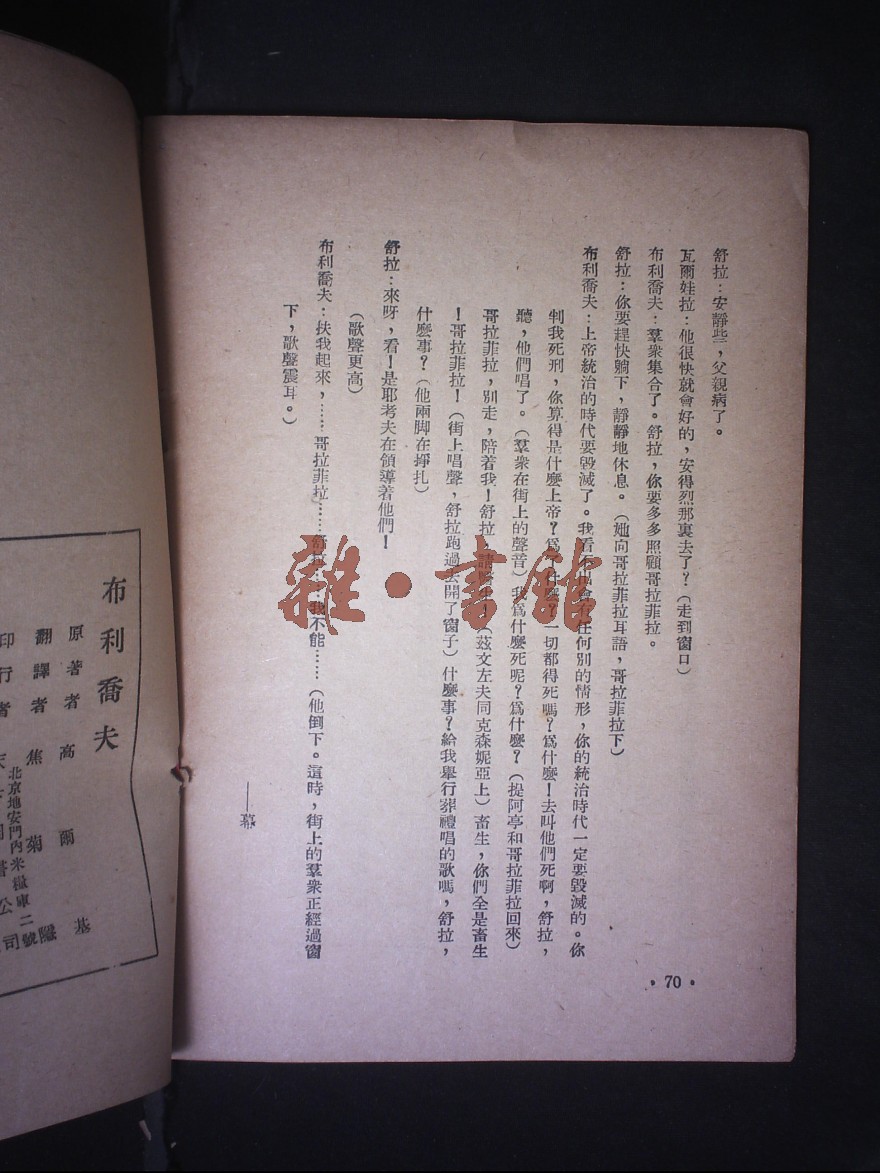 舒拉：安靜些，父親病了。
瓦爾娃拉：他很快就會好的，安得烈那裏去了？（走到窗口）
布利喬夫：羣衆集合了。舒拉，你要多多照顧哥拉菲拉。
舒拉：你要趕快躺下，靜靜地休息。（她向哥拉菲拉耳語，哥拉菲拉下）
布利喬夫：上帝統治的時代要毀滅了。我看不出會有任何別的情形，你的統治時代一定要毀滅的。你
判我死刑，你算得是什麼上帝？爲了什麼？一切都得死嗎？爲什麼！去叫他們死啊，舒拉，
聽，他們唱了。（羣衆在街上的聲音）我爲什麼死呢？爲什麼？（提阿亭和哥拉菲拉回來）
哥拉菲拉，別走，陪着我！舒拉，請醫生！（茲文左夫同克森妮亞上）畜生，你們全是畜生
！哥拉菲拉！（街上唱聲，舒拉跑過去開了窗子）什麼事？給我舉行葬禮唱的歌嗎，舒拉，
什麼事？（他兩脚在掙扎）
舒拉：來呀，看！是耶考夫在領導着他們！
（歌聲更高）
布利喬夫：扶我起來，……哥拉菲拉……舒拉……我不能……（他倒下。這時，街上的羣衆正經過窗
下，歌聲震耳。）
——幕
• 70 •
雜•書館
布利喬夫
原著者 高爾基
翻譯者 焦菊隱
印行者
北京地安門內米糧庫二號
公司